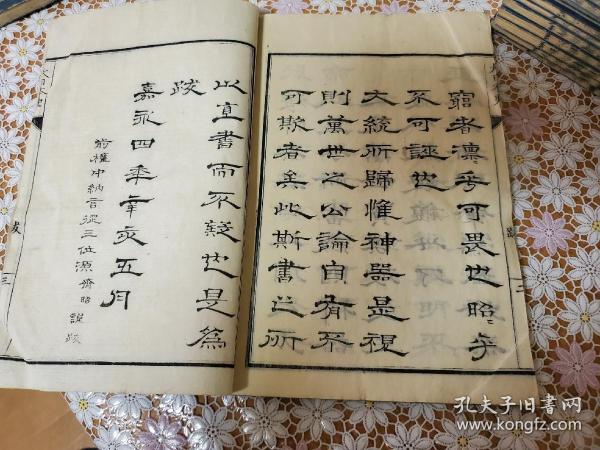 窮者凛乎可畏也昭〻乎
不可誣也
大統所歸惟神器是視
則萬世之公論自有不
可欺者矣此斯書之所
以直書而不疑也是爲
跋
嘉永四年辛亥五月
前權中納言從三位源齊昭謹跋
跋
三
二
孔夫子旧書网
www.kongfz.com